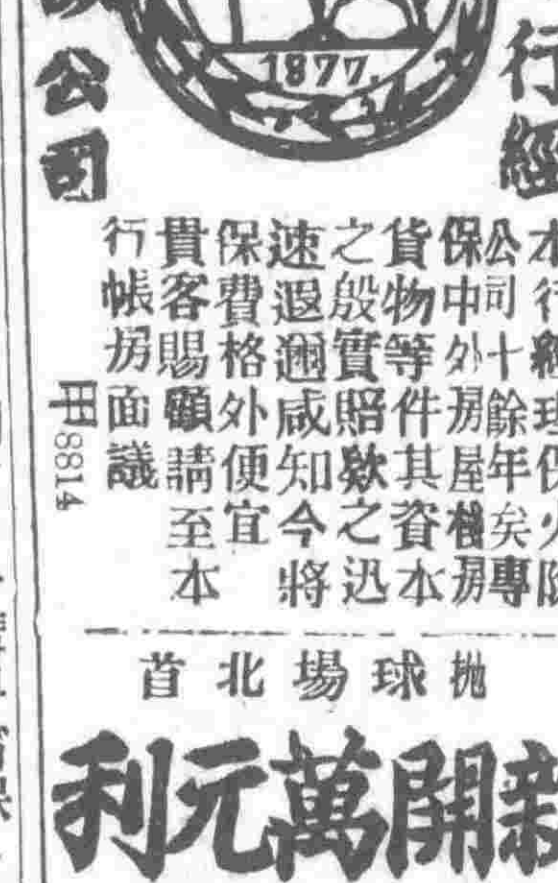 行經
公司
1877.
本行經理保火險
公司十餘年矣專
保中外房屋棧房
貨物等件其資本
之殷實賠欵之迅
速遐邇咸知今將
保費格外便宜
貴客賜顧請至本
行帳房面議
甲8814
拋球場北首
新開萬元利